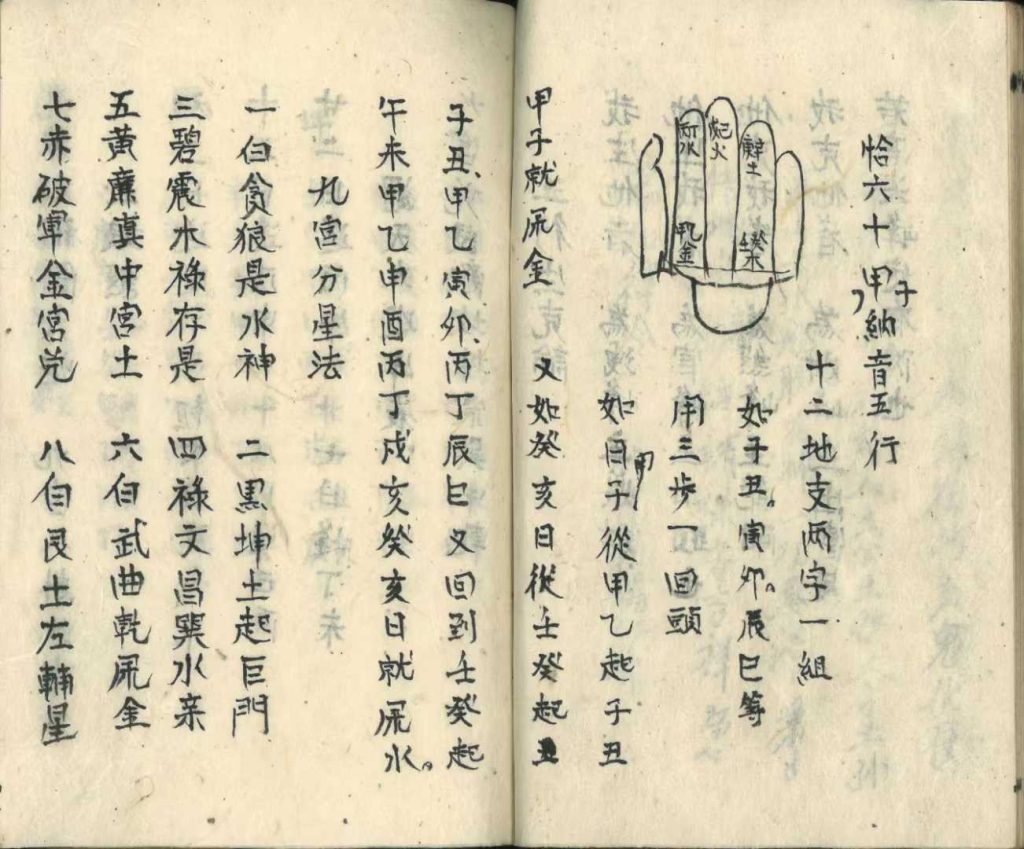 恰六十甲子納音五行
十二地支两字一組
如子丑。寅卯。辰巳等
用三歩一回頭
如日甲子從甲乙起子丑
丙丁水
戊己火
庚辛土
甲乙金
壬癸木
甲子就属金 又如癸亥日從壬癸起丑
子丑、甲乙寅卯、丙丁辰巳又回到壬癸起
午未甲乙申酉丙丁戌亥癸亥日就属水。
九宮分星法
一白貪狼是水神 二黑坤土起巨門
三碧震水祿存是 四祿文昌巽水亲
五黄廉真中宮土 六白武曲乾属金
七赤破軍金宮兑 八白艮土左輔星